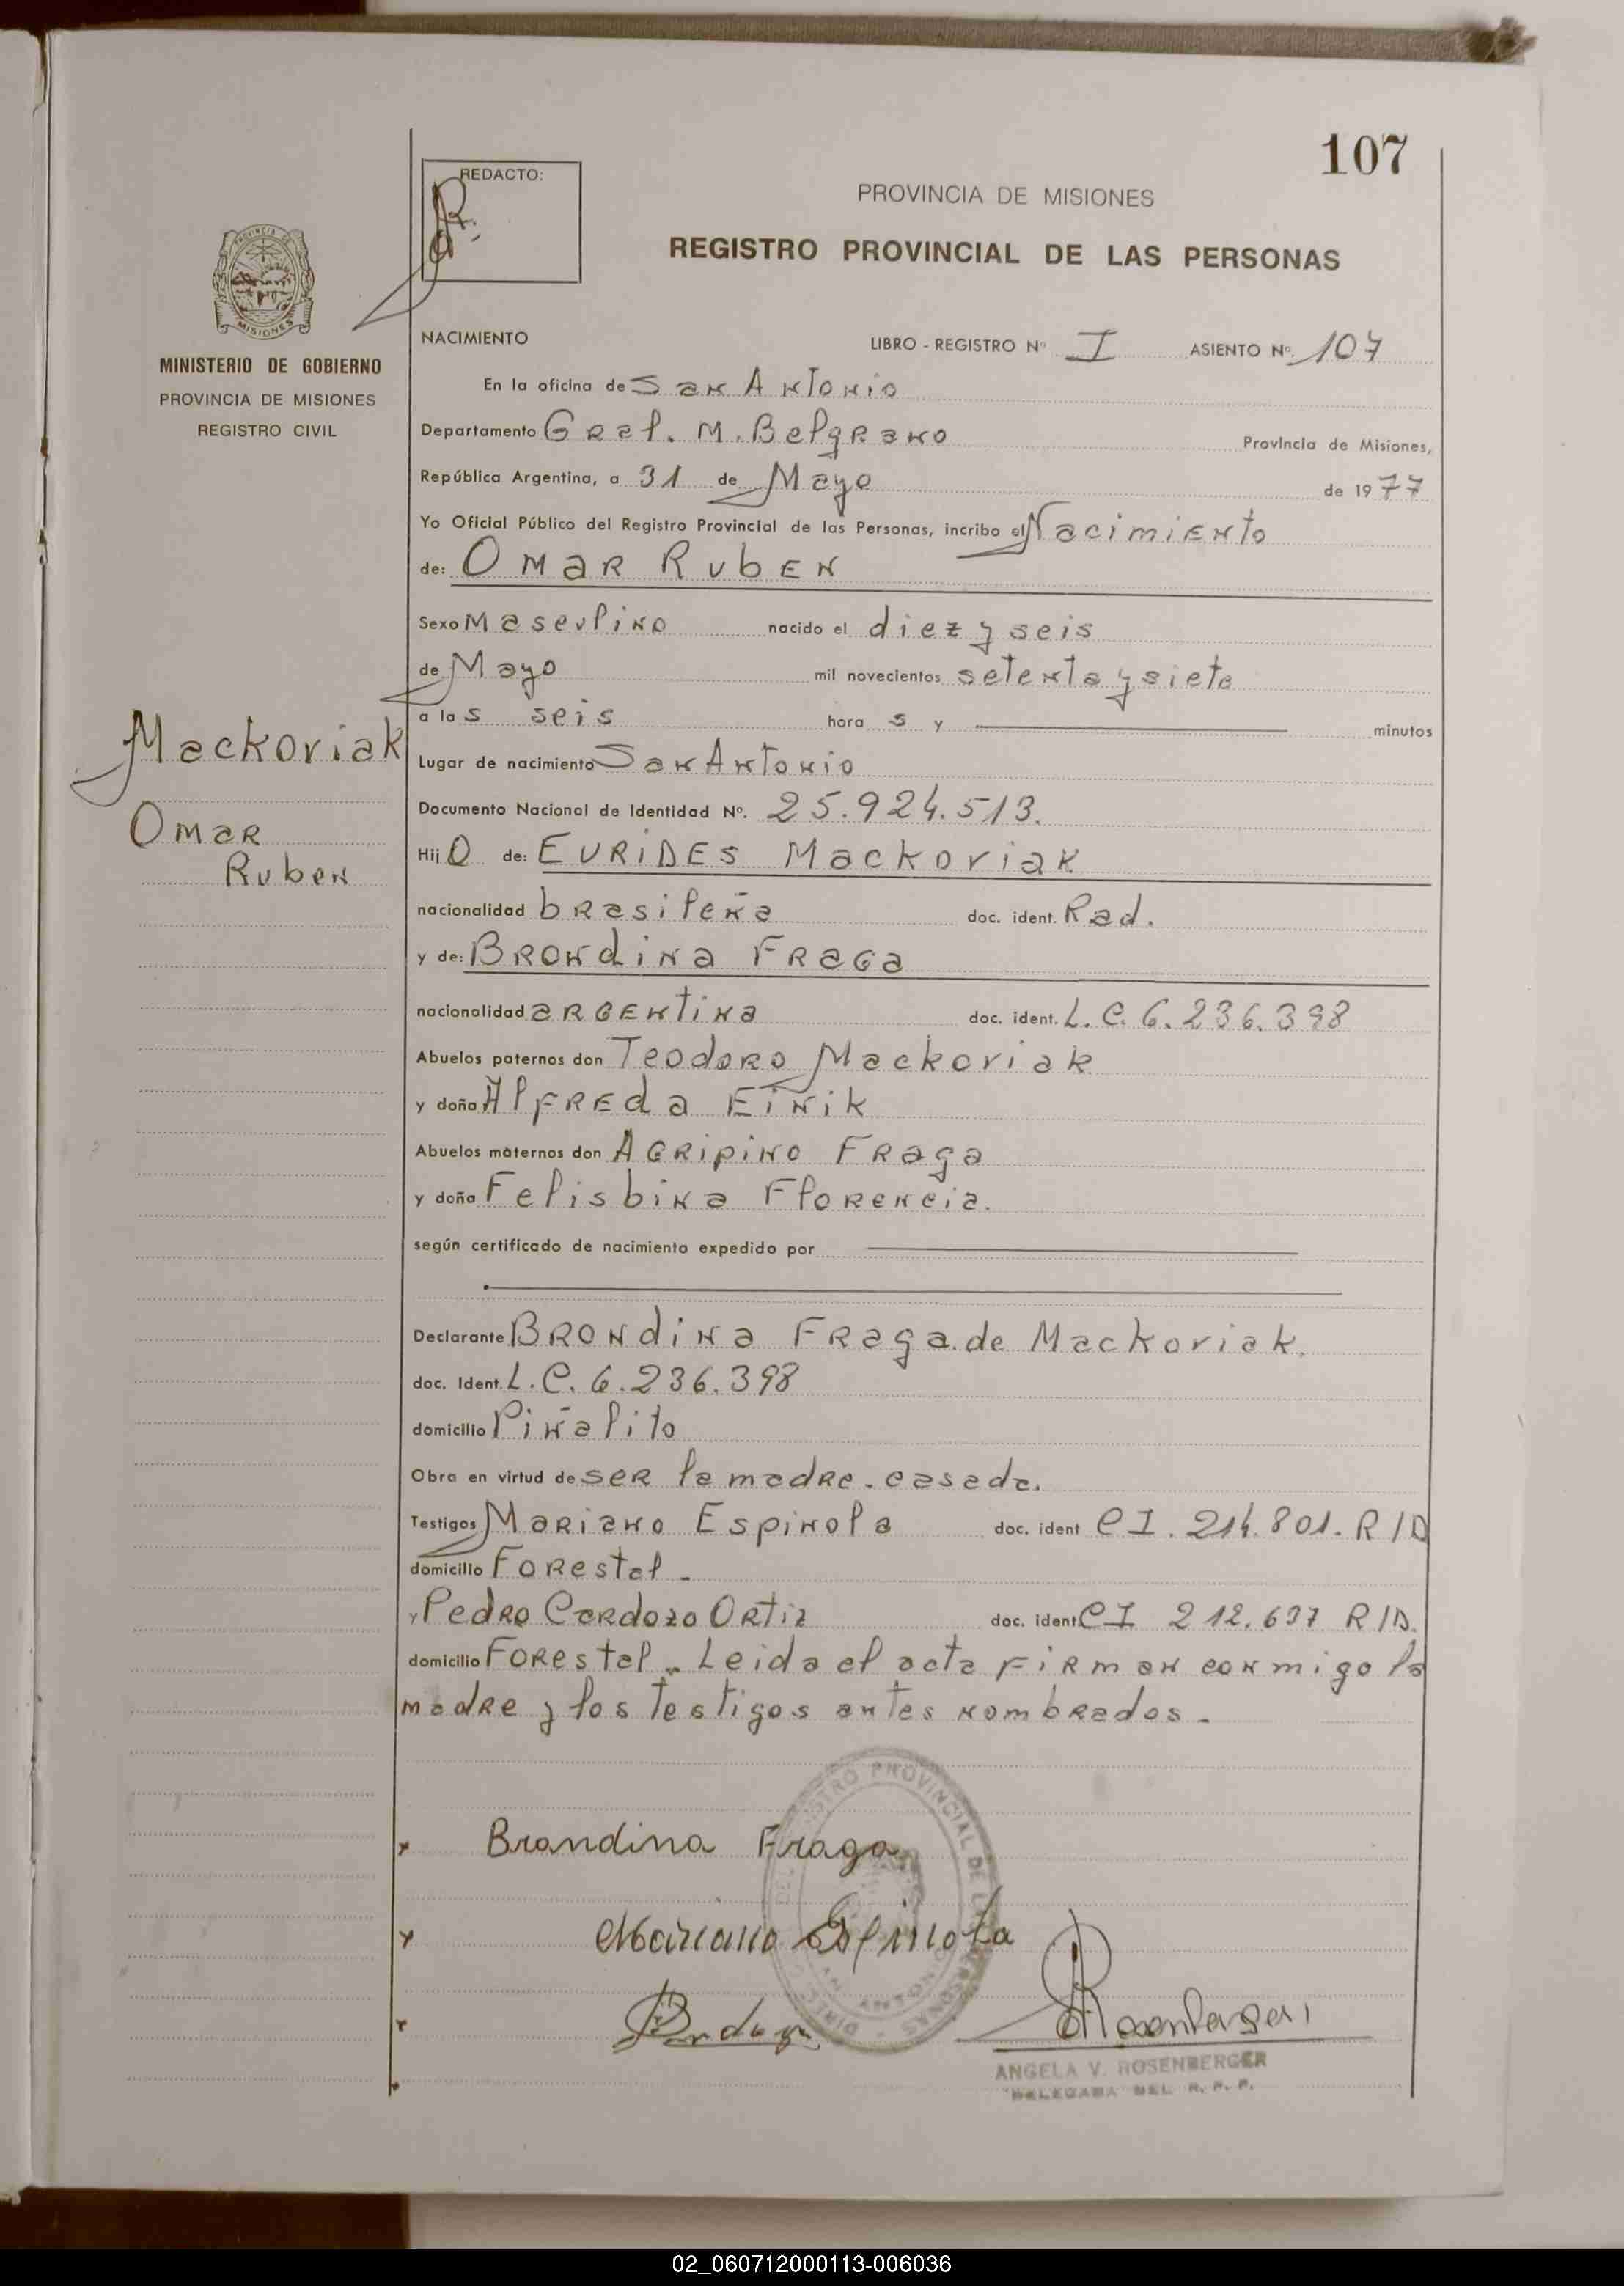 107
REDACTO:
PROVINCIA DE MISIONES
REGISTRO PROVINCIAL DE LAS PERSONAS
MINISTERIO DE GOBIERNO
PROVINCIA DE MISIONES
REGISTRO CIVIL
NACIMIENTO LIBRO - REGISTRO Nº I ASIENTO Nº. 107
En la oficina de San Antonio
Departamento Gral. M. Belgrano Provincia de Misiones,
República Argentina, a 31 de Mayo de 1977
Yo Oficial Público del Registro Provincial de las Personas, incribo el Nacimiento
de: Omar Ruben
Sexo Masculino nacido el diez y seis
de Mayo mil novecientos setenta y siete
a las seis horas y minutos
Mackoviak
Omar
Ruben
Lugar de nacimiento San Antonio
Documento Nacional de Identidad Nº. 25.924.513.
Hijo de: Eurides Mackoviak
nacionalidad brasileña doc. ident. Rad.
y de: Brondina Fraga
nacionalidad argentina doc. ident. L.C. 6.236.398
Abuelos paternos don Teodoro Mackoviak
y doña Alfreda
Abuelos maternos don Agripino Fraga
y doña Felisbina Florencia.
según certificado de nacimiento expedido por
Declarante Brondina Fraga de Mackoviak.
doc. Ident. L.C. 6.236.398
domicilio Piñalito
Obra en virtud de ser la madre. casada.
Testigos Mariano Espinola doc. ident CI. 214.801. R/D
domicilio Forestal -
y Pedro Cardozo Ortiz doc. ident CI 212.637 R/D.
domicilio Forestal - Leida el acta firman conmigo la
madre y los testigos antes nombrados -
Brandina Fraga
Mariano Espinola
ANGELA V. ROSENBERGER
DELEGADA DEL R. P. P.
02_060712000113-006036